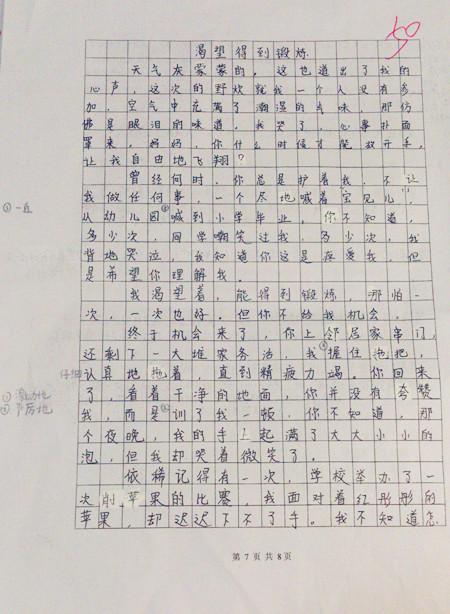 50
渴望得到锻炼
天气灰蒙蒙的，这也道出了我的
心声，这次的野炊就我一个人没有参
加，空气中充满了潮湿的气味，那仿
佛是眼泪的味道，我哭了，心事扑面
罩来，妈妈，你什么时候才能放开手，
让我自由地飞翔？
曾经何时，你总是护着我，不让
我做任何事，一个尽地喊着宝贝儿，
①一直
从幼儿园喊到小学毕业，你不知道，
多少次，同学嘲笑过我，多少次，我
背地哭泣，我知道你这是在爱我，但
是希望你理解我。
我渴望着，能得到锻炼，哪怕一
次，一次也好。但你不给我机会。
终于机会来了，你上邻居家串门，
还剩下一大堆家务活，我握住拖把，
仔细
认真地拖着，直到精疲力竭。你回来
了，看着干净的地面，你并没有夸赞
①激动地
②严厉地
我，而是训了我一顿，你不知道，那
个夜晚，我的手上起满了大大小小的
泡，但我却哭着微笑了。
依稀记得有一次，学校举办了一
次削苹果的比赛，我面对着红彤彤的
苹果，却迟迟下不了手。我不知道怎
第7页共8页